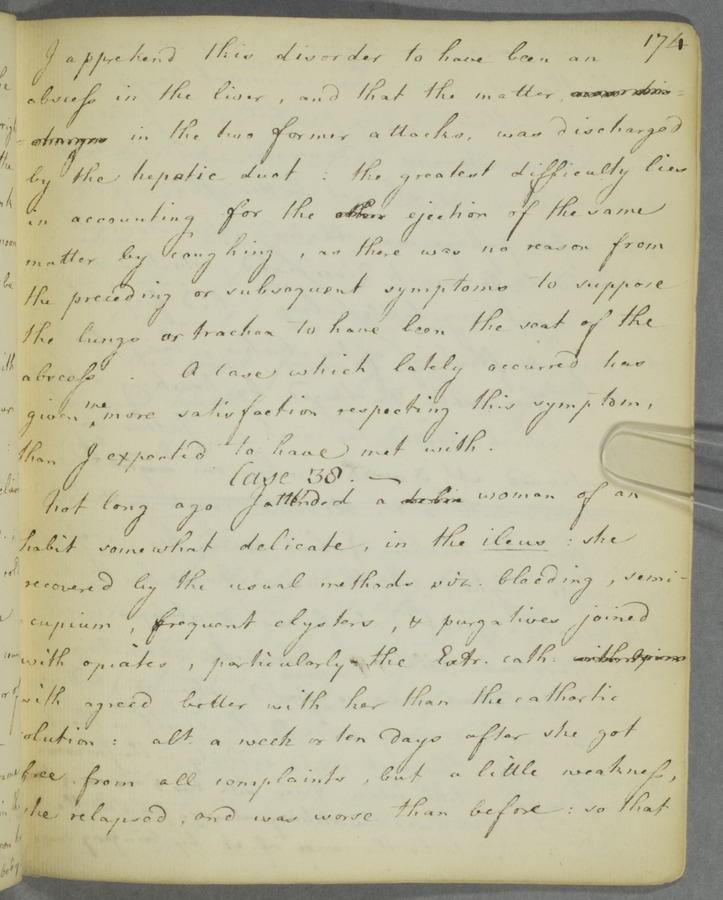 174
I apprehend this disorder to have been an
abscess in the liver, and that the matter,
in the two former attacks, was discharged
by the hepatic duct : the greatest difficulty lies
in accounting for the ejection of the same
matter by coughing, as there was no reason from
the preceding or subsequent symptoms to suppose
the lungs or trachea to have been the seat of the
abscess. A Case which lately occurred has
given me more satisfaction respecting this symptom,
than I expected to have met with.
Case 38. —
Not long ago I attended a woman of an
habit somewhat delicate, in the ileus : she
recovered by the usual methods viz. bleeding, semi-
cupium, frequent clysters, & purgatives joined
with opiates, particularly the Extr. cath.
with agreed better with her than the cathartic
olution : abt a week or ten days after she got
free from all complaints, but a little weakness,
she relapsed, and was worse than before : so that